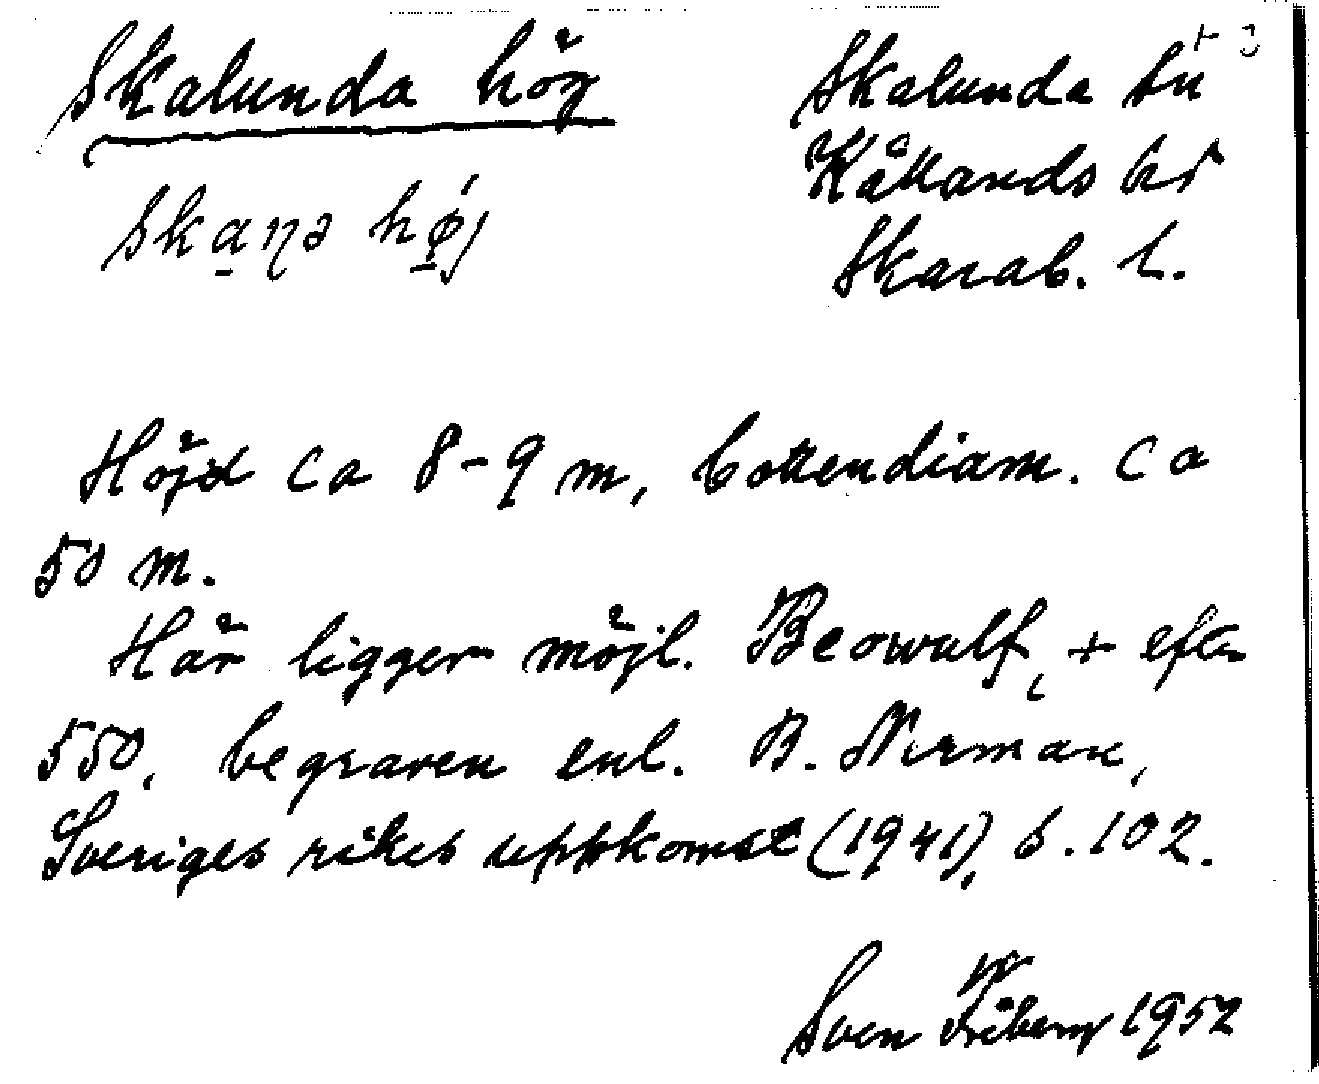 Skalunda hög
Skalunda sn
Kållands hd
Skarab. l.
Skaɳə høj
Höjd ca 8-9 m, bottendiam. ca
50 m.
Här ligger möjl. Beowulf, + efter
550, begraven enl. B. Nerman,
Sveriges rikes uppkomst (1941), s. 102.
Sven 1952